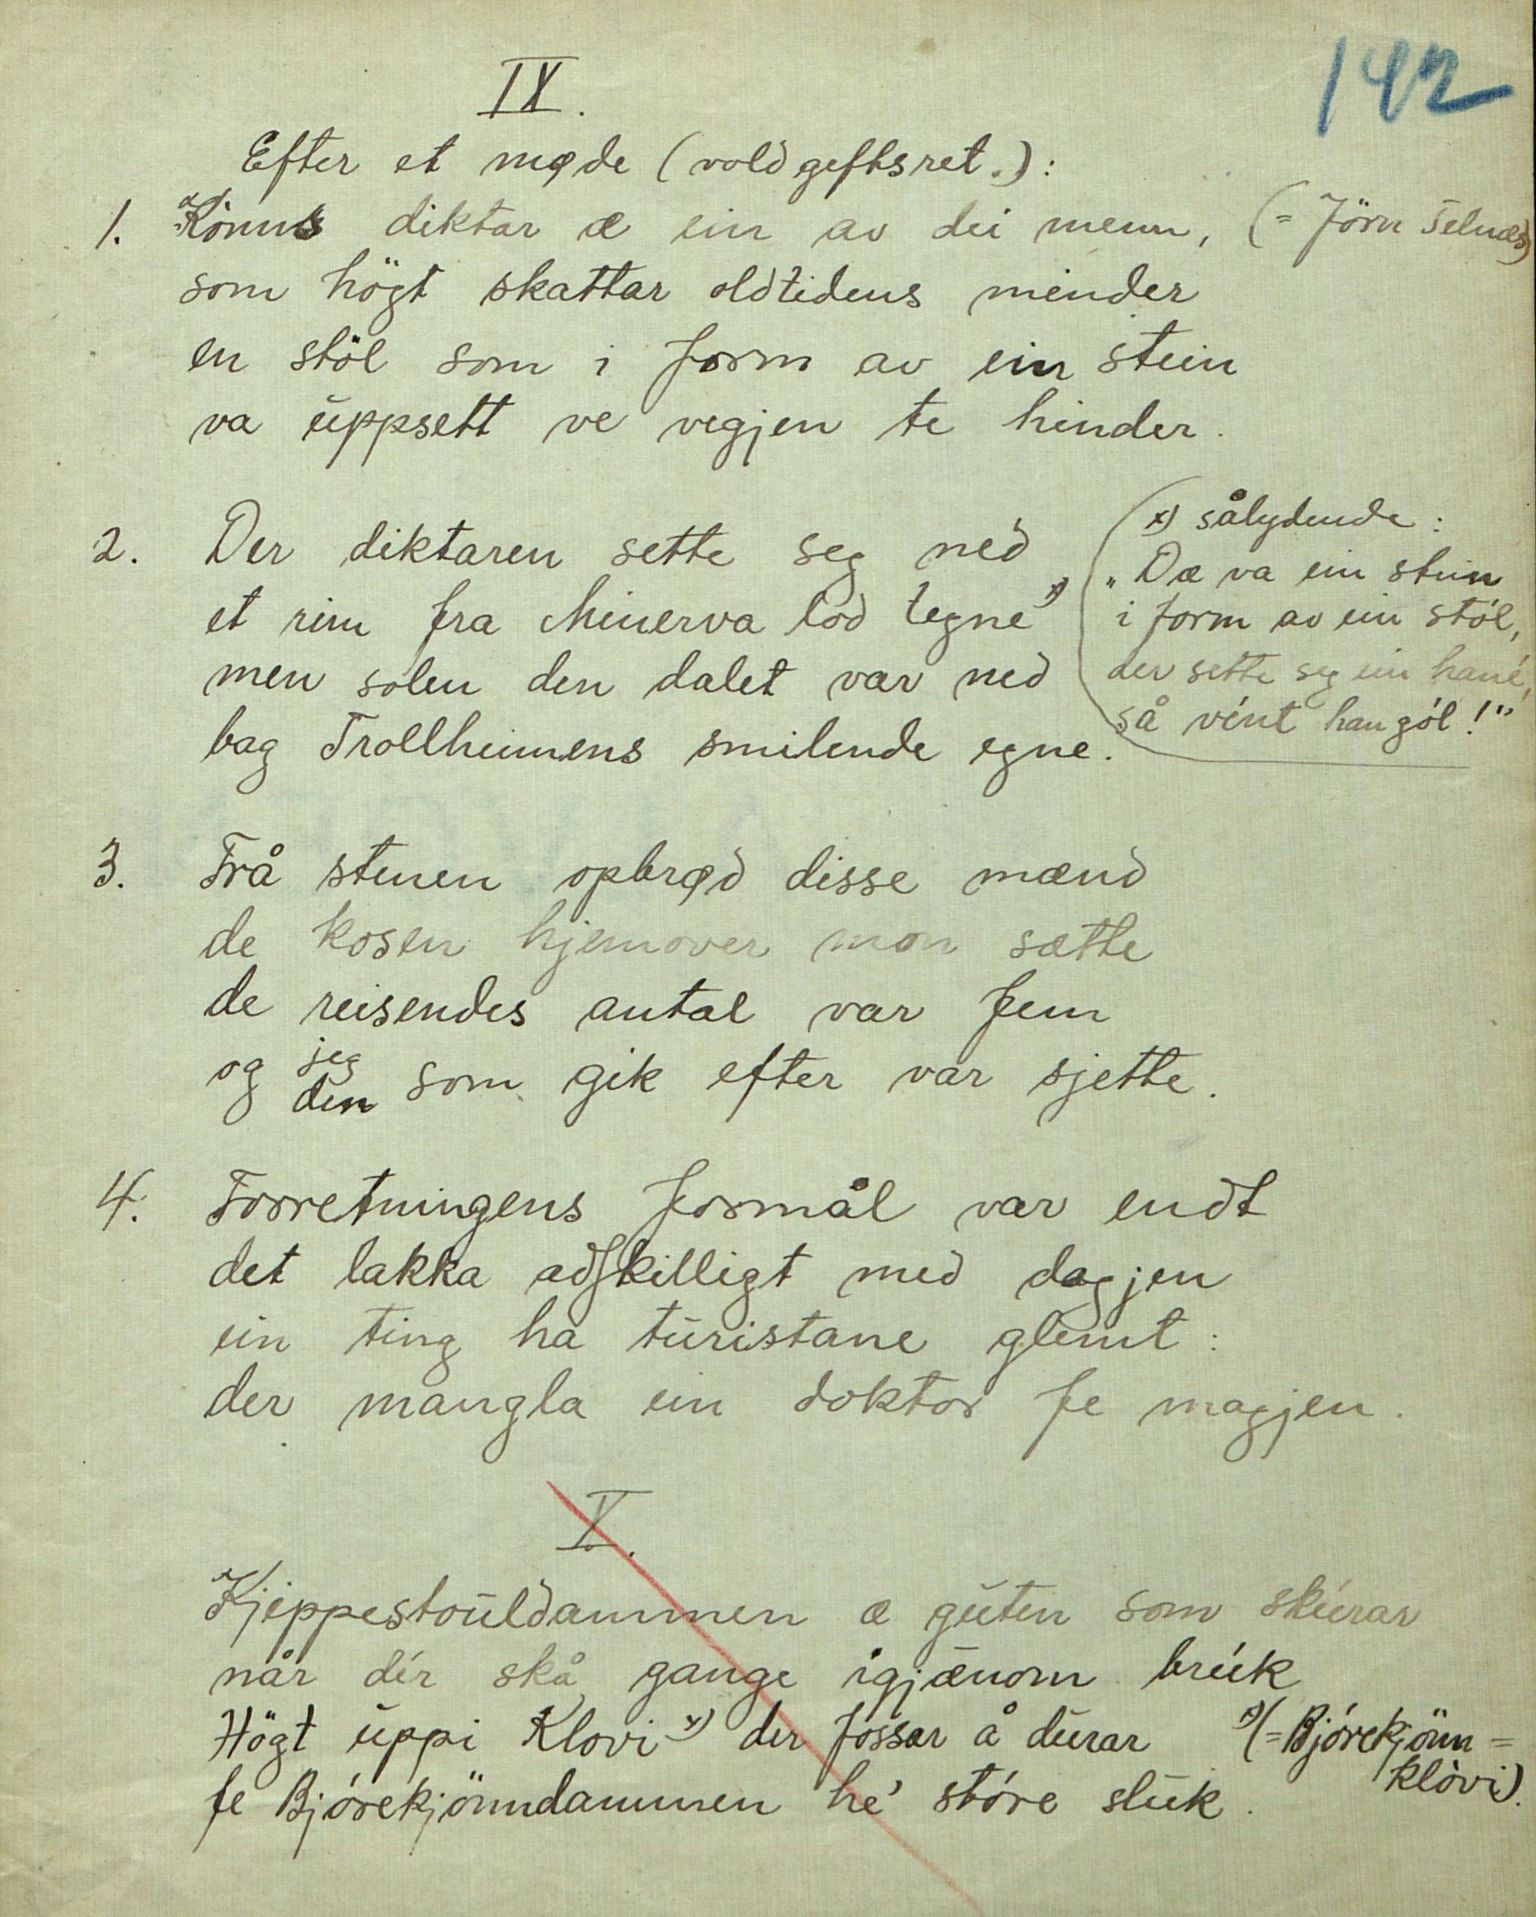 142
IX.
Efter et møde (voldgiftsret.):
1. Könnis diktar æ ein av dei menn, (= Jörn Telnæs)
som högt skattar oldtidens minder
en stöl som i form av ein stein
va uppsett ve vegjen te hinder.
2. Der diktaren sette seg ned
et rim fra Minerva lod tegne x)
men solen den dalet var ned
bag Trollheimens smilende egne.
(x) sålydende:
"Dæ va ein stein
i form av ein stól,
der sette seg ein hané,
så vént han gól!"
3. Frå stenen opbrød disse mænd
de kosen hjemover mon sætte
de reisendes antal var fem
og jeg den som gik efter var sjette.
4. Forretningens formål var endt
det lakka adskilligt med dagjen
ein ting ha turistane glemt:
der mangla ein doktor fe magjen.
V.
Kjeppestouldammen æ guten som skúrar
når dér skå gange igjænom brúk
Högt uppi Klovi x) der fossar å durar
fe Bjórekjönndammen hé stóre sluk.
x) (= Bjórekjönn=
klòvi).